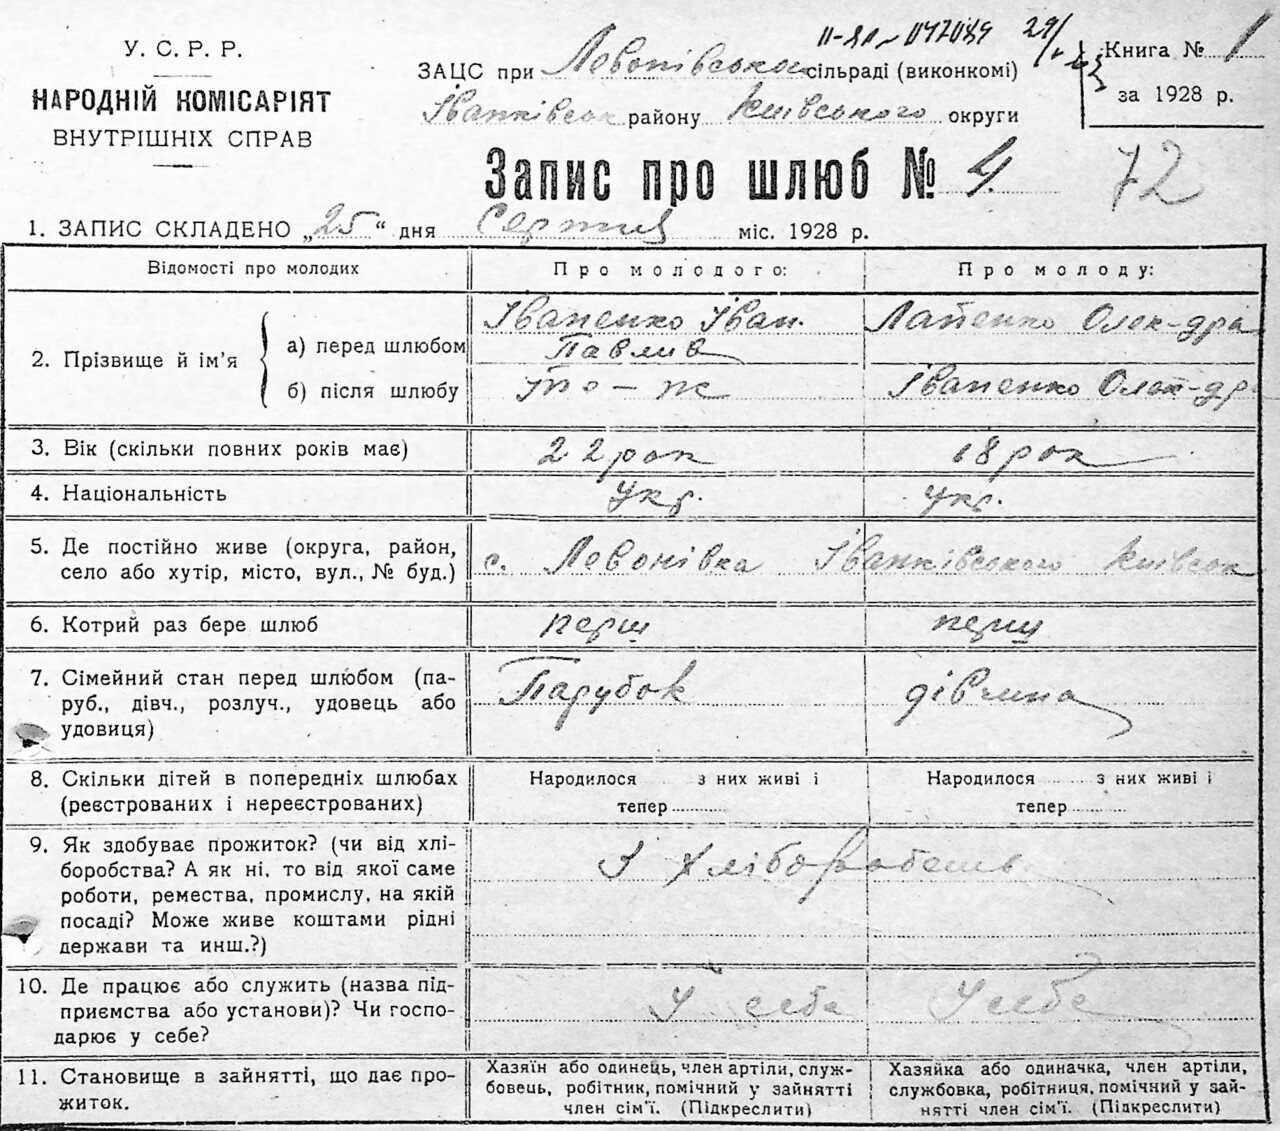 У. С. Р. Р.
НАРОДНІЙ КОМІСАРІЯТ
ВНУТРІШНІХ СПРАВ
11-ЯЛ-047089 29/
ЗАЦС при Левонівською сільраді (виконкомі)
Іванківськ району Київського округи
Книга № 1
за 1928 р.
Запис про шлюб № 4.
72
1. ЗАПИС СКЛАДЕНО „25“ дня Серпня міс. 1928 р.
Відомості про молодих
Про молодого:
Про молоду:
2. Прізвище й ім’я
а) перед шлюбом
Іваненко Іван.
Павлив
Лапенко Олек-дра
б) після шлюбу
то – ж
Іваненко Олек-др
3. Вік (скільки повних років має)
22 рок
18 рок
4. Національність
Укр.
Укр.
5. Де постійно живе (округа, район,
село або хутір, місто, вул., № буд.)
с. Левонівка Іванківського Київськ
6. Котрий раз бере шлюб
перш
перш
7. Сімейний стан перед шлюбом (па-
руб., дівч., розлуч., удовець або
удовиця)
Парубок
дівчина
8. Скільки дітей в попередніх шлюбах
(реєстрованих і нереєстрованих)
Народилося з них живі і
тепер
Народилося з них живі і
тепер
9. Як здобуває прожиток? (чи від хлі-
боробства? А як ні, то від якої саме
роботи, ремества, промислу, на якій
посаді? Може живе коштами рідні
держави та инш.?)
З Хлібо
10. Де працює або служить (назва під-
приємства або установи)? Чи госпо-
дарює у себе?
У себе
У себе
11. Становище в зайнятті, що дає про-
житок.
Хазяїн або одинець, член артіли, служ-
бовець, робітник, помічний у зайнятті
член сім’ї. (Підкреслити)
Хазяйка або одиначка, член артіли,
службовка, робітниця, помічний у зай-
нятті член сім’ї. (Підкреслити)